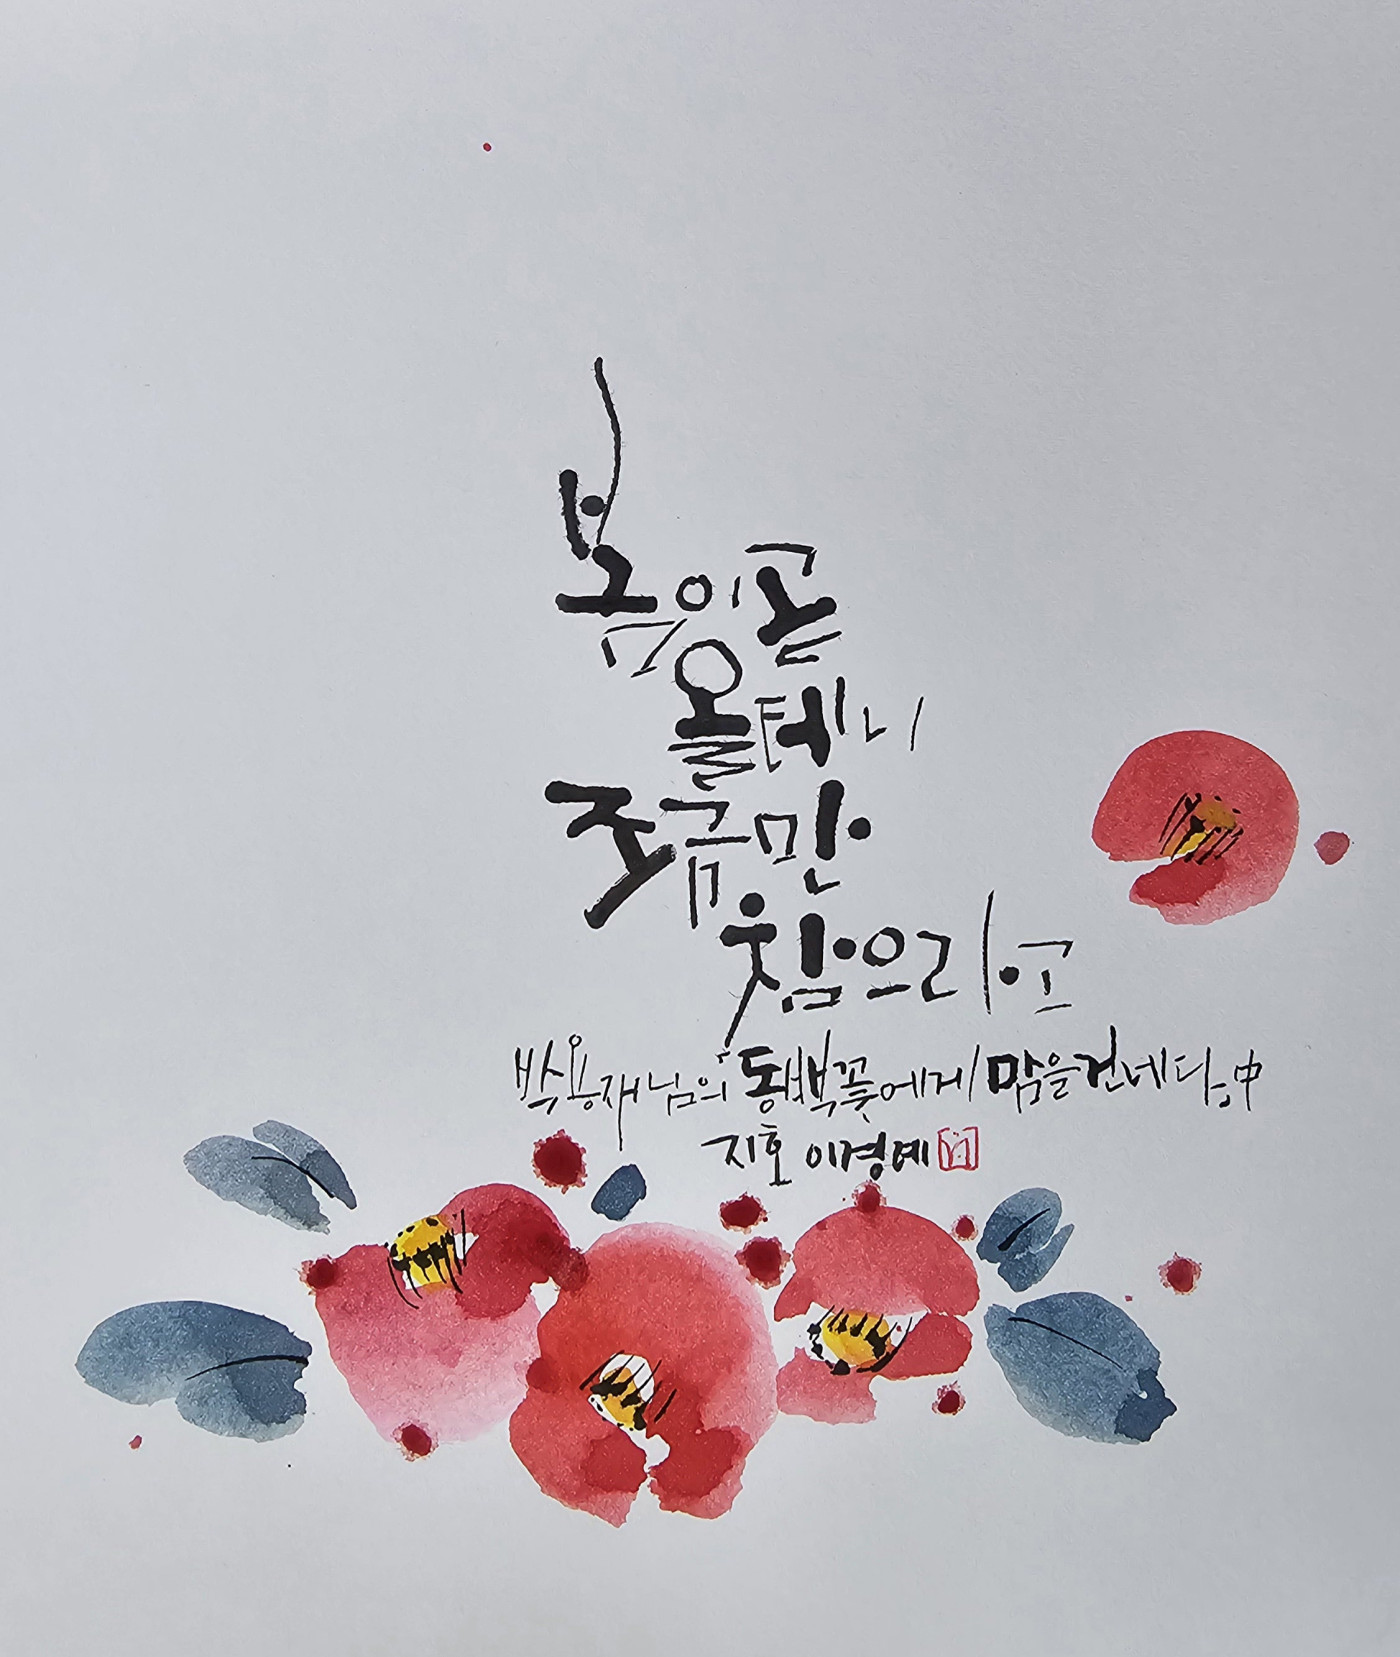 봄이 곧
올테니
조금만
참으라고
박용재님의 동백꽃에게 맘을 건네다. 中
지호 이경예